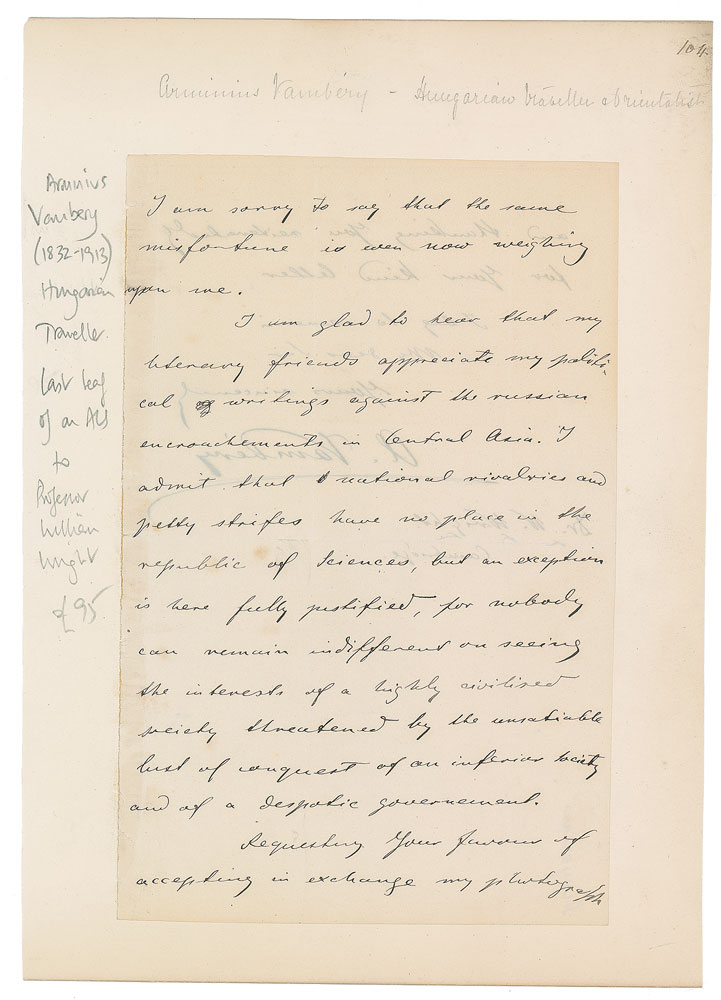 104
Arminius Vambéry - Hungarian traveller & Orientalist
Arminius
Vambery
(1832-1913)
Hungarian
Traveller.
Last leaf
of an ALS
to
Professor
William
Wright
£95
I am sorry to say that the same
misfortune is even now weighing
upon me.
I am glad to hear that my
literary friends appreciate my politi-
cal writings against the russian
encroachements in Central Asia. I
admit that national rivalries and
petty strifes have no place in the
republic of Sciences, but an exception
is here fully justified, for nobody
can remain indifferent on seeing
the interests of a highly civilised
society threatened by the unsatiable
lust of conquest of an inferior society
and of a despotic governement.
Requesting Your favour of
accepting in exchange my photograph